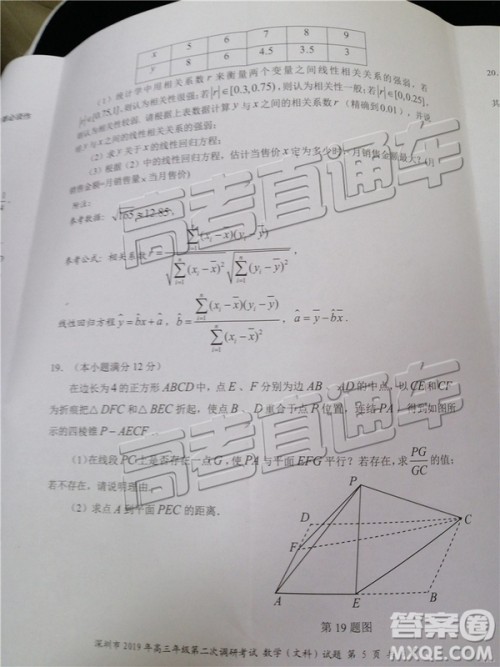 x 5 6 7 8 9
y 8 6 4.5 3.5 3
（1）统计学中用相关系数 r 来衡量两个变量之间线性相关关系的强弱，若
|r|∈[0.75,1]，则认为相关性很强；若|r|∈[0.3,0.75)，则认为相关性一般；若|r|∈[0,0.25]，
则认为相关性较弱. 请根据上表数据计算 y 与 x 之间相关系数 r（精确到0.01），并说
明 y 与 x 之间的线性相关关系的强弱；
（2）求 y 关于 x 的线性回归方程；
（3）根据（2）中的线性回归方程，估计当售价 x 定为多少时，月销售金额最大？（月
销售金额=月销售量×当月售价）
附注：
参考数据：√165≈12.85，
参考公式：相关系数 r = ∑(xᵢ-x̄)(yᵢ-ȳ) / √∑(xᵢ-x̄)² √∑(yᵢ-ȳ)²，
线性回归方程 ŷ=b̂x+â，b̂ = ∑(xᵢ-x̄)(yᵢ-ȳ) / ∑(xᵢ-x̄)²，â=ȳ-b̂x̄．
19.（本小题满分12分）
在边长为4的正方形ABCD中，点E、F分别为边AB、AD的中点，以CE和CF
为折痕把△DFC和△BEC折起，使点B、D重合于点P位置，连结PA，得到如图所
示的四棱锥P-AECF．
（1）在线段PC上是否存在一点G，使PA与平面EFG平行？若存在，求 PG/GC 的值；
若不存在，请说明理由．
（2）求点A到平面PEC的距离．
P
D
C
F
A
E
B
第19题图
深圳市2019年高三年级第二次调研考试 数学（文科）试题 第 5 页
20.
高考直通车
高考直通车
高考直通车
答案圈
MXQE.COM